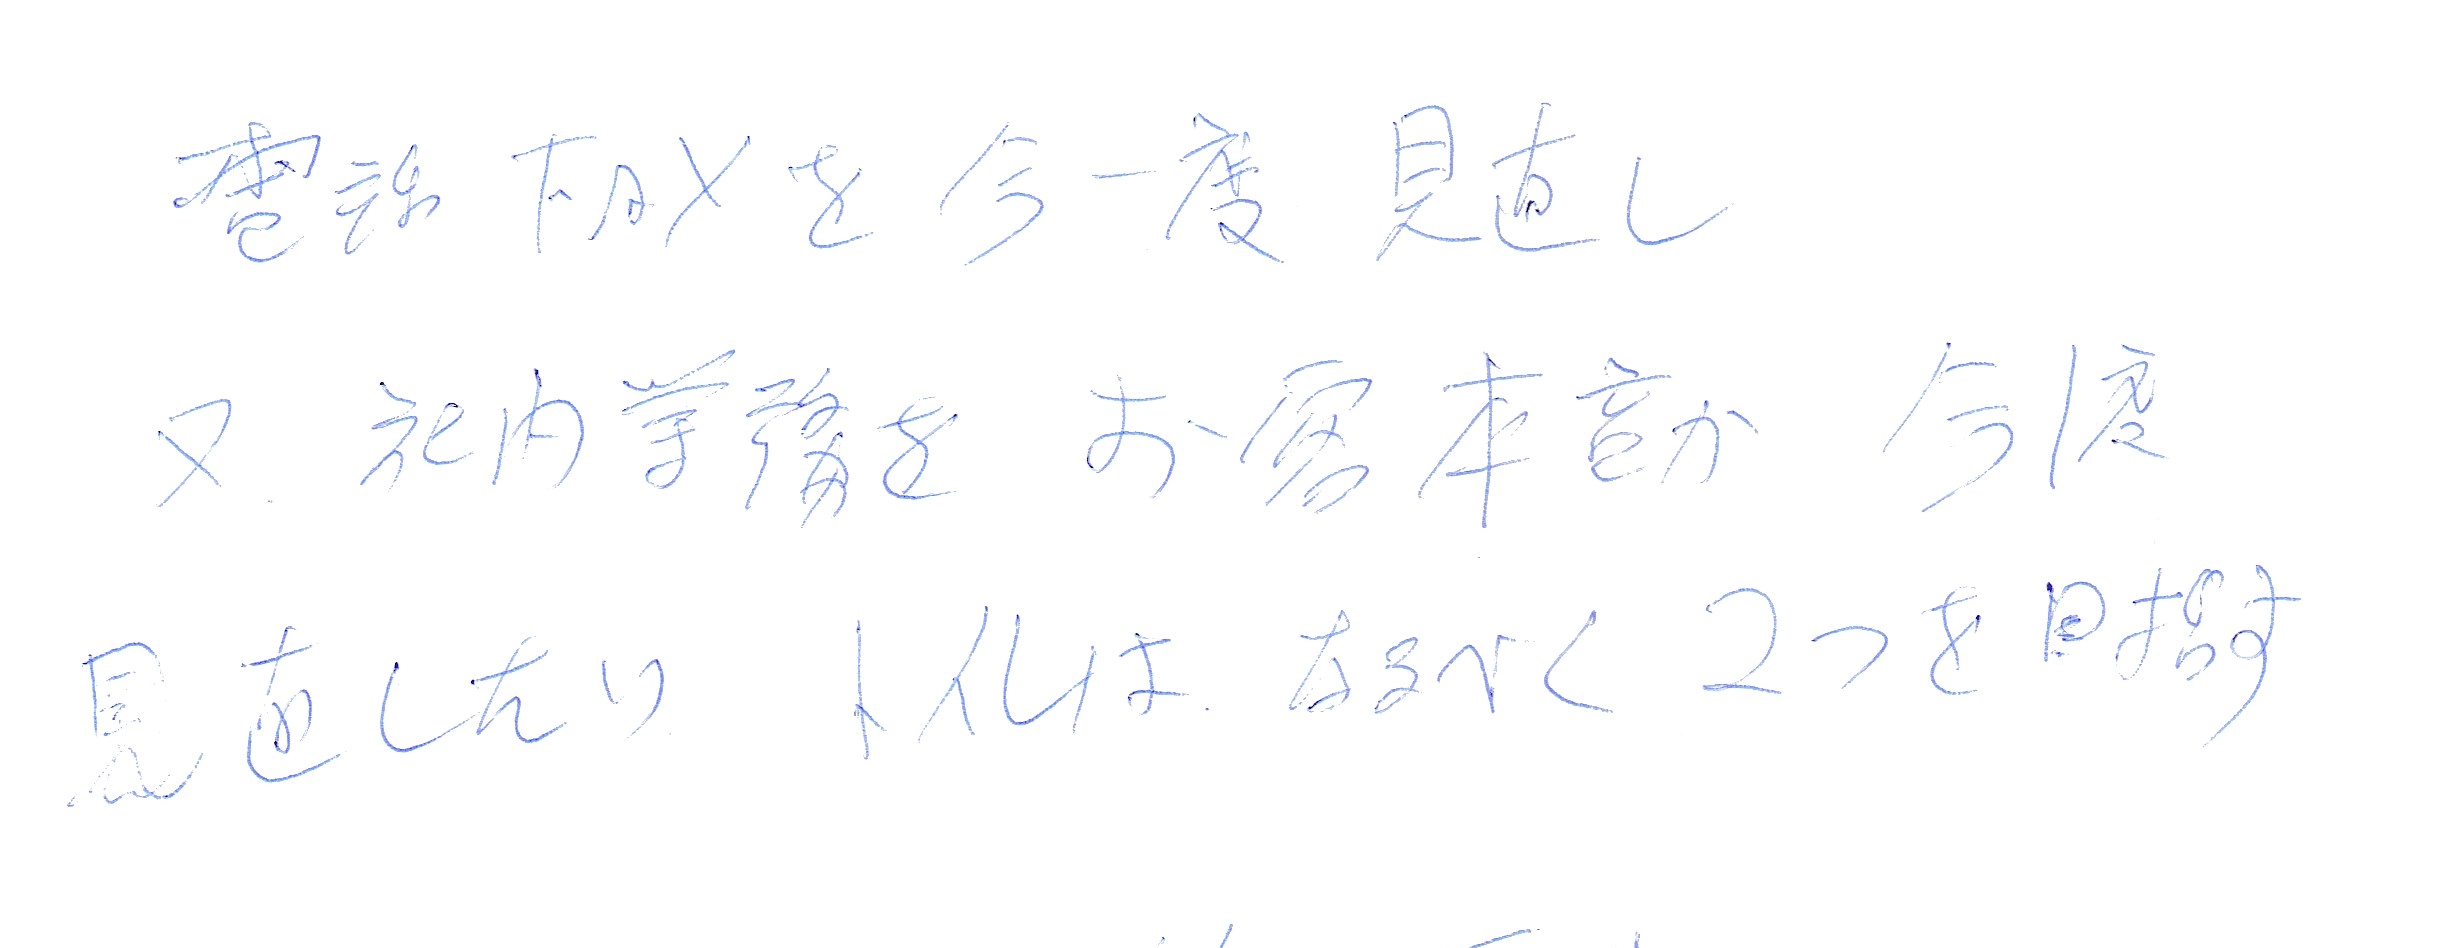 電話 FAXを今一度 見直し
又、社内業務を お客本意か 今1度
見直したい は、なるべく 2つを目指す